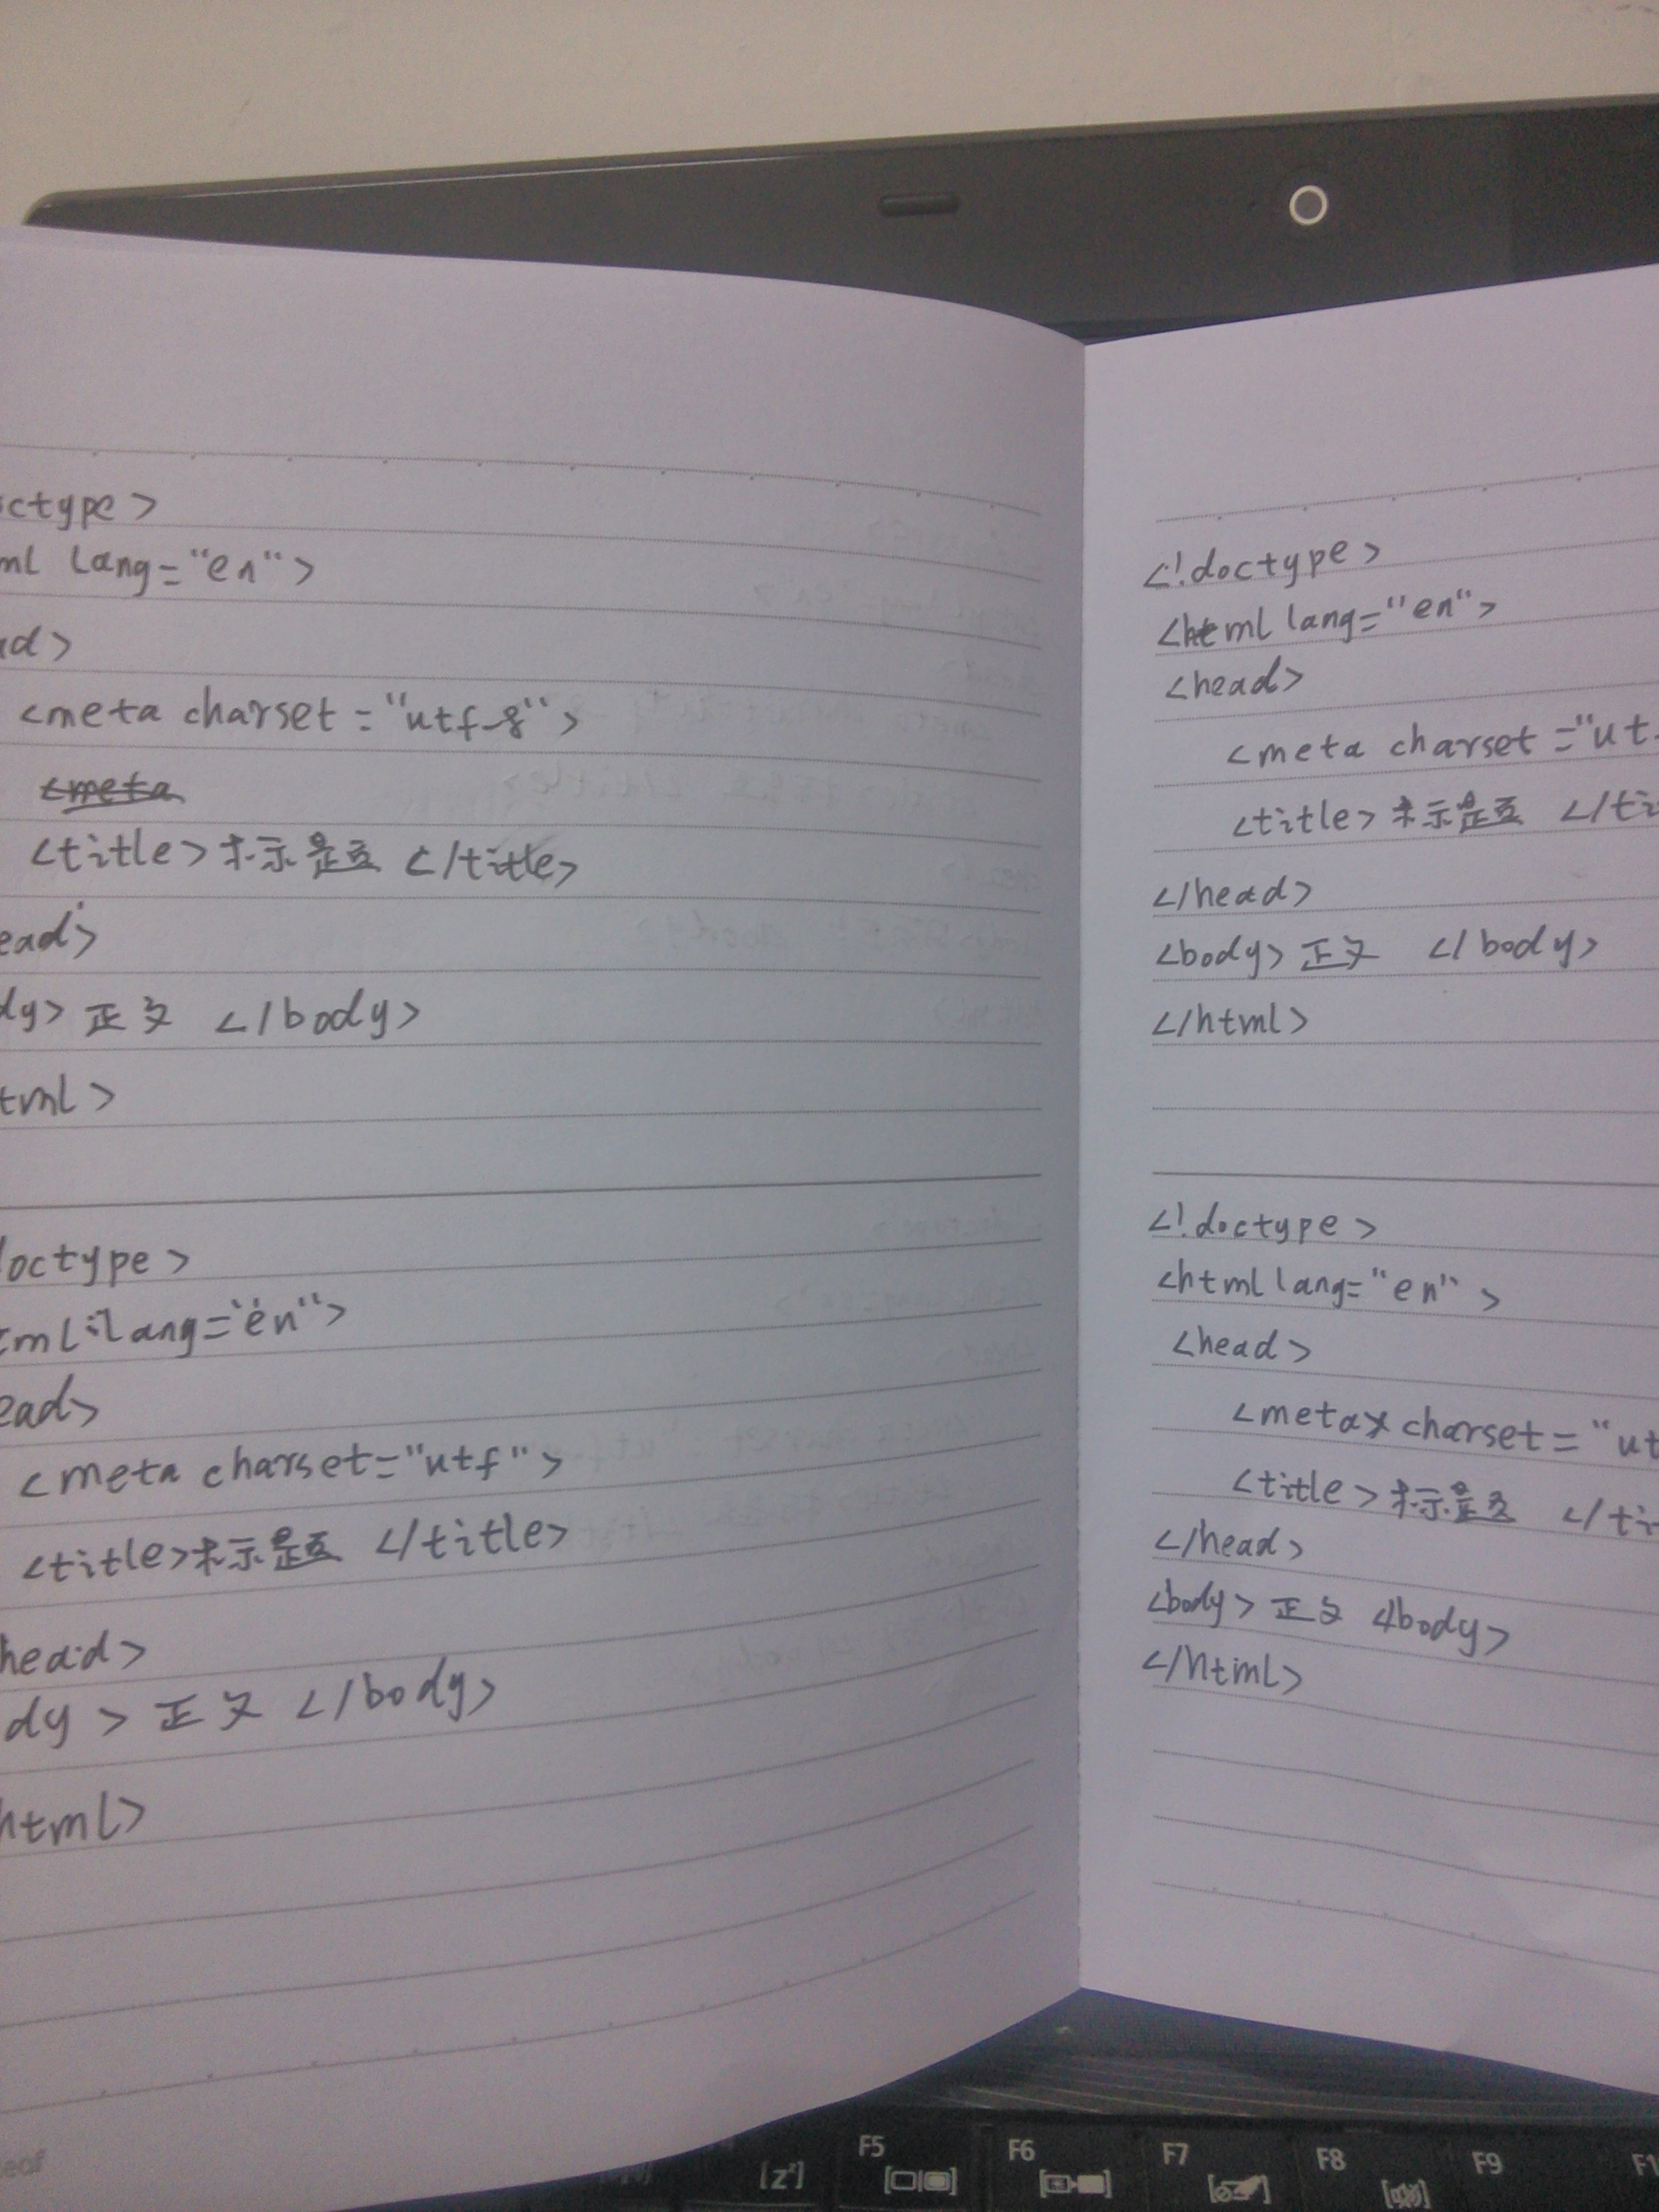 octype>
ml lang="en">
ad>
<meta charset="utf-8">
<meta
<title>标示是页 </title>
ead>
dy>正文 </body>
tml>
doctype>
tml lang="en">
ead>
<meta charset="utf">
<title>标示是页 </title>
head>
dy>正文 </body>
html>
<!doctype>
<html lang="en">
<head>
<meta charset="ut
<title>标示是页 </ti
</head>
<body>正文 </body>
</html>
<!doctype>
<html lang="en">
<head>
<meta charset="ut
<title>标示是页 </ti
</head>
<body>正文 </body>
</html>
eaf
F5
F6
F7
F8
F9
F1
[zz]